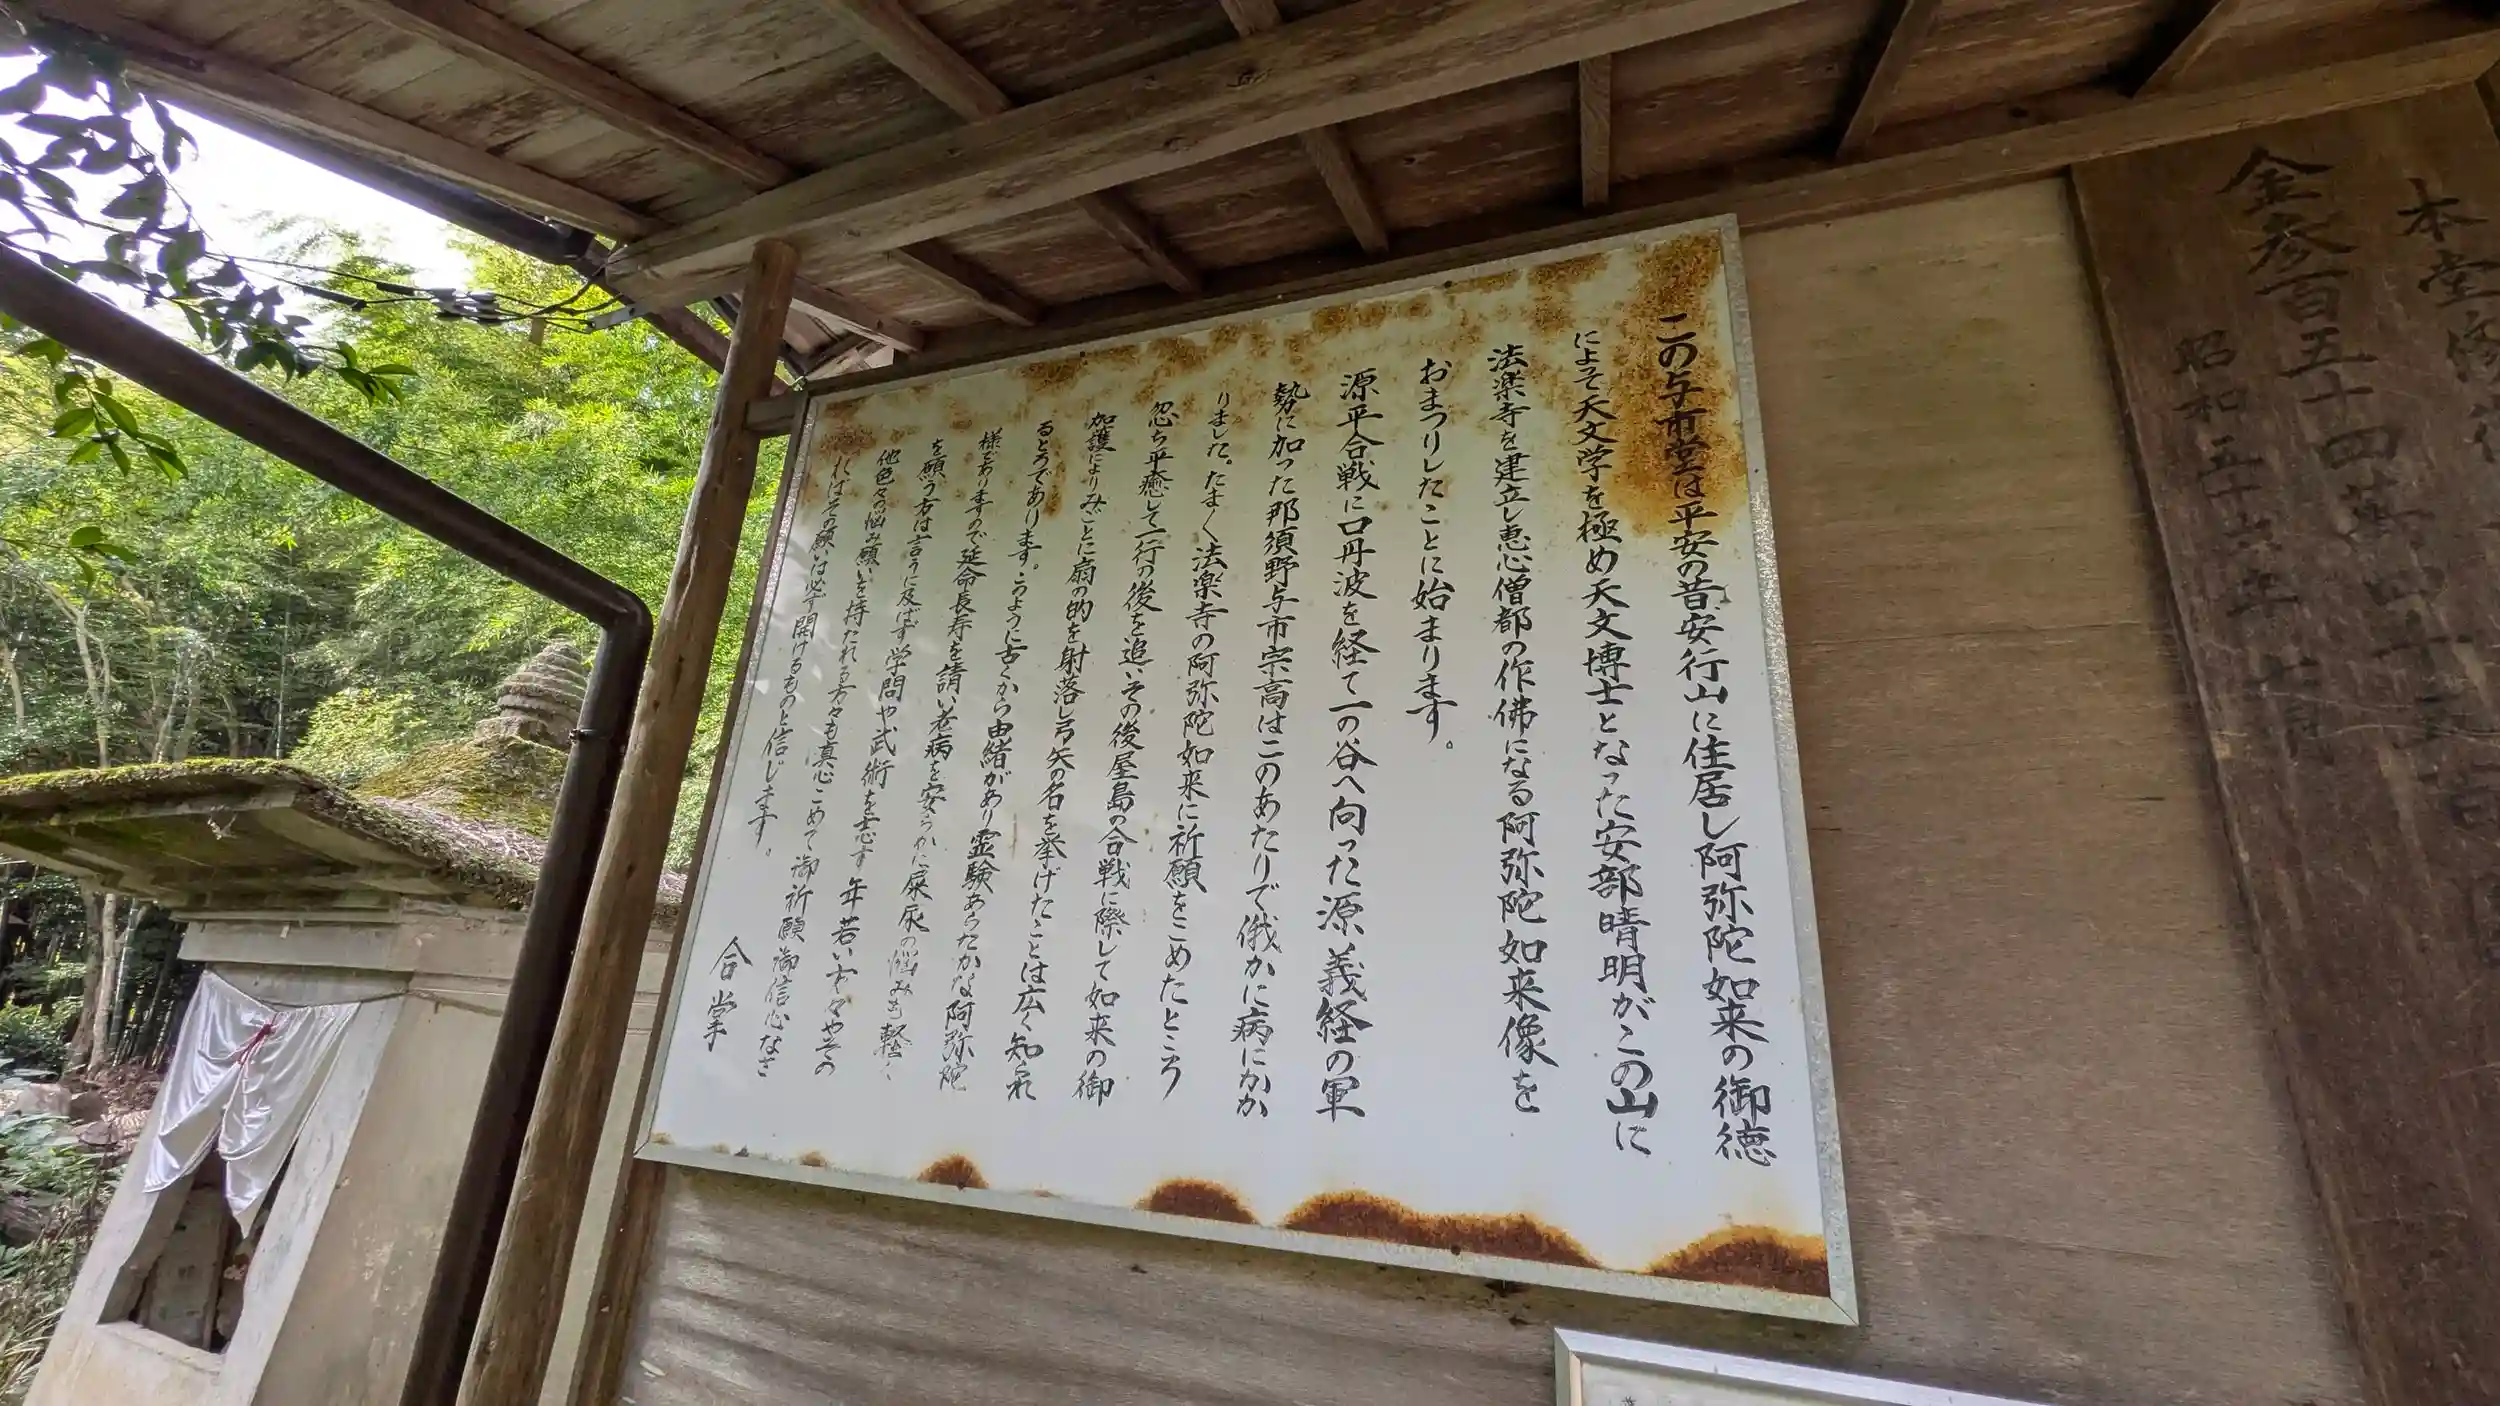 本堂修復
金参百五十四萬四十
昭和五十六年七月
この与市堂は平安の昔安行山に住居し阿弥陀如来の御徳
によって天文学を極め天文博士となった安部晴明がこの山に
法楽寺を建立し恵心僧都の作佛になる阿弥陀如来像を
おまつりしたことに始まります。
源平合戦に口丹波を経て一の谷へ向った源義経の軍
勢に加った那須野与市宗高はこのあたりで俄かに病にかか
りました。たま〱法楽寺の阿弥陀如来に祈願をこめたところ
忽ち平癒して一行の後を追いその後屋島の合戦に際して如来の御
加護によりみごとに扇の的を射落し弓矢の名を挙げたことは広く知れ
るところであります。このように古くから由緒があり霊験あらたかな阿弥陀
様でありますので延命長寿を請い老病を安らかに屎尿の悩みも軽く
を願う方は言うに及ばず学問や武術を志す年若い方々やその
他色々の悩み願いを持たれる方々も真心こめて御祈願御信心なさ
ればその願いは必ず開けるものと信じます。
合掌